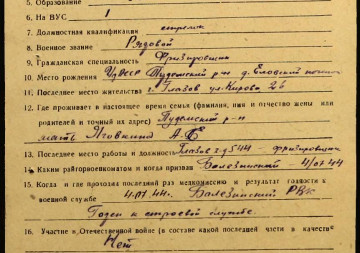 5. Образование
6. На ВУС 1
7. Должностная квалификация стрелок
8. Военное звание Рядовой
9. Гражданская специальность
10. Место рождения УдАССР Пудемский р-н д.
11. Последнее место жительства г. Глазов ул. Кирова 26
12. Где проживает в настоящее время семья (фамилия, имя и отчество жены или
родителей и точный их адрес) Пудемский р-н
мать А. Е
13. Последнее место работы и должность Глазов 44
14. Каким райгорвоенкоматом и когда призван Балезинский 4/01 44
15. Когда и где проходил последний раз медкомиссию и результат годности к
военной службе 4.01.44г. Балезинский РВК
Годен к строевой службе.
16. Участие в Отечественной войне (в составе какой последней части в качестве
Нет